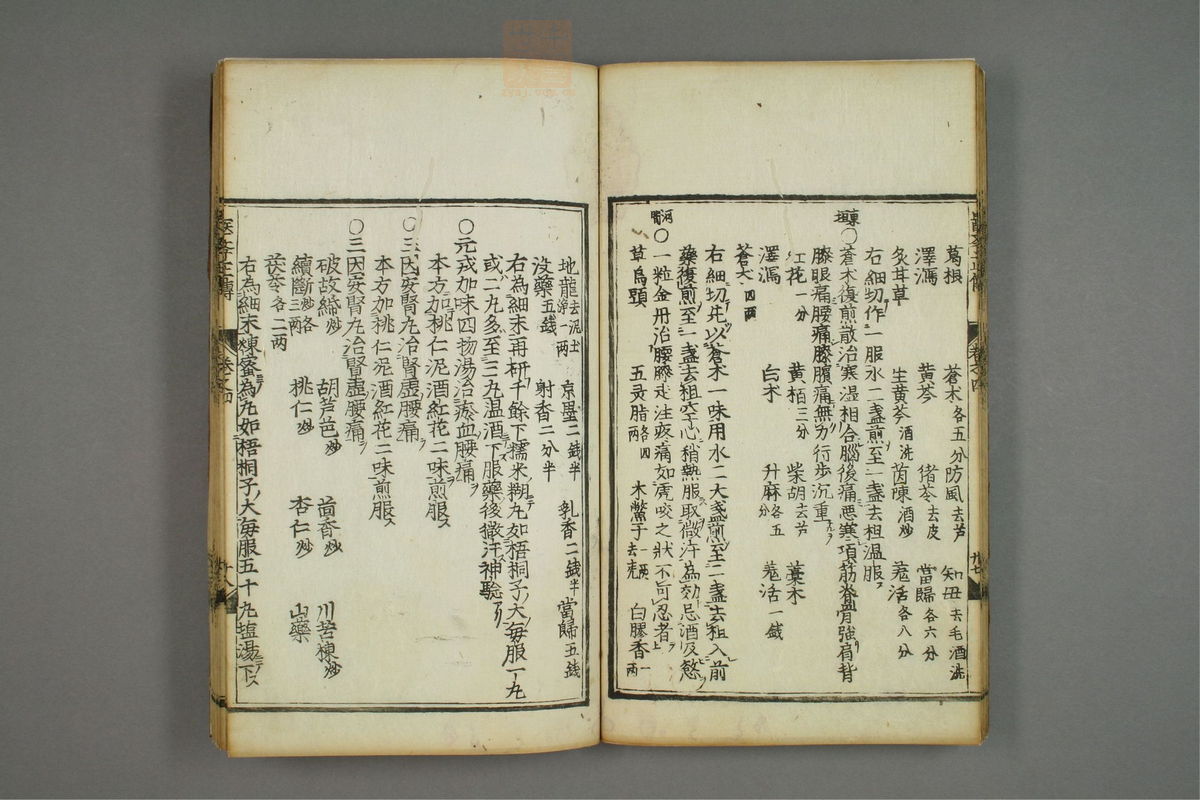 葛根 蒼朮各五分 防風去芦 知母去毛酒洗
澤瀉 黄芩 猪苓去皮 當歸各六分
炙甘草 生黄芩酒洗 茵陳酒炒 羗活各八分
右細切作一服水二盞煎至一盞去柤温服
東垣
○蒼朮復煎散治寒湿相合腦後痛悪寒項筋脊骨強肩背
膝眼痛腰痛膝臏痛無力行歩沉重
紅花一分 黄栢三分 柴胡去芦 藁本
澤瀉 白朮 升麻各五分 羗活一戔
蒼朮四両
右細切先以蒼朮一味用水二大盞煎至二盞去柤入前
藥復煎至一盞去柤空心稍熱服取微汗為効忌酒及慾
河間
○一粒金丹治腰膝走注疼痛如虎咬之狀不可忍者
草烏頭 五灵脂各四両 木鱉子去壳一両 白膠香一両
地龍去泥土浄一両 京墨二戔半 乳香二戔半 當歸五戔
没藥五戔 射香二分半
右為細末再研千餘下糯米糊丸如梧桐子大毎服一丸
或二丸多至三丸温酒下服藥後微汗神驗
○元戎加味四物湯治瘀血腰痛
本方加桃仁泥酒紅花二味煎服
○三因安腎丸治腎虚腰痛
本方加桃仁泥酒紅花二味煎服
○三因安腎丸治腎虚腰痛
破故紙炒 胡芦芭炒 茴香炒 川苦楝炒
續斷炒各三両 桃仁炒 杏仁炒 山藥
茯苓各二両
右為細末煉蜜為丸如梧桐子大毎服五十丸塩湯下
卷之四